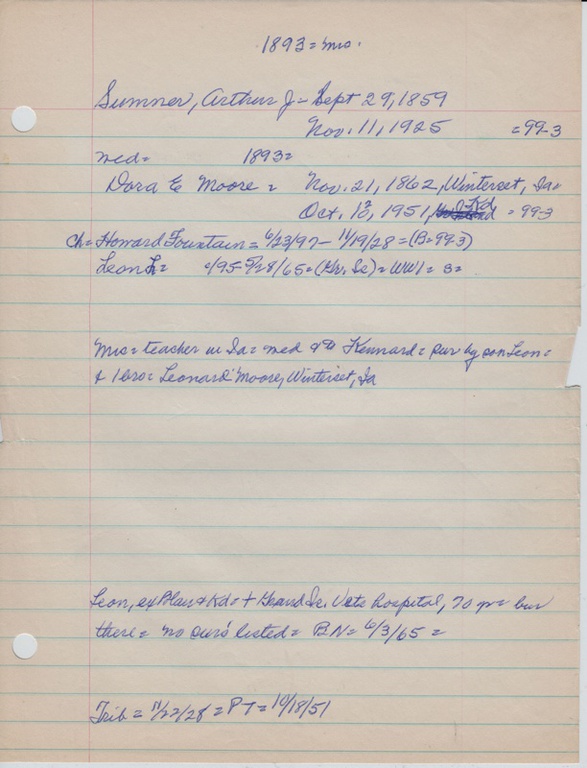 1893 = Mrs.
Sumner, Arthur J - Sept 29, 1859
Nov. 11, 1925 = 99-3
med = 1893 =
Dora E Moore = Nov. 21, 1862, Winterset, Ia =
Oct. 12, 1951, Kd = 99-3
Ch = Howard Fountain = 6/23/97 - 11/19/28 = (B = 99-3)
Leon = /95 - 5/28/65 = (Gr. Is) = WW1 = 3 =
Mrs = teacher in Ia = med at Kennard = sur by son Leon =
+ 1 bro = Leonard Moore, Winterset, Ia
Leon, ex Blair + Kd = + Grand Is. Vets hospital, 70 yr = bur
there = no surs listed = BN = 6/3/65 =
Trib = 11/22/28 = PT = 10/18/51